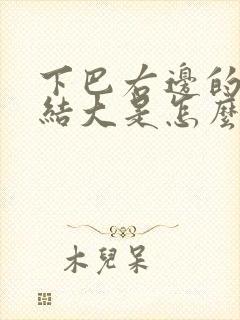 下巴右邊的
結大是怎麼
木兒呆